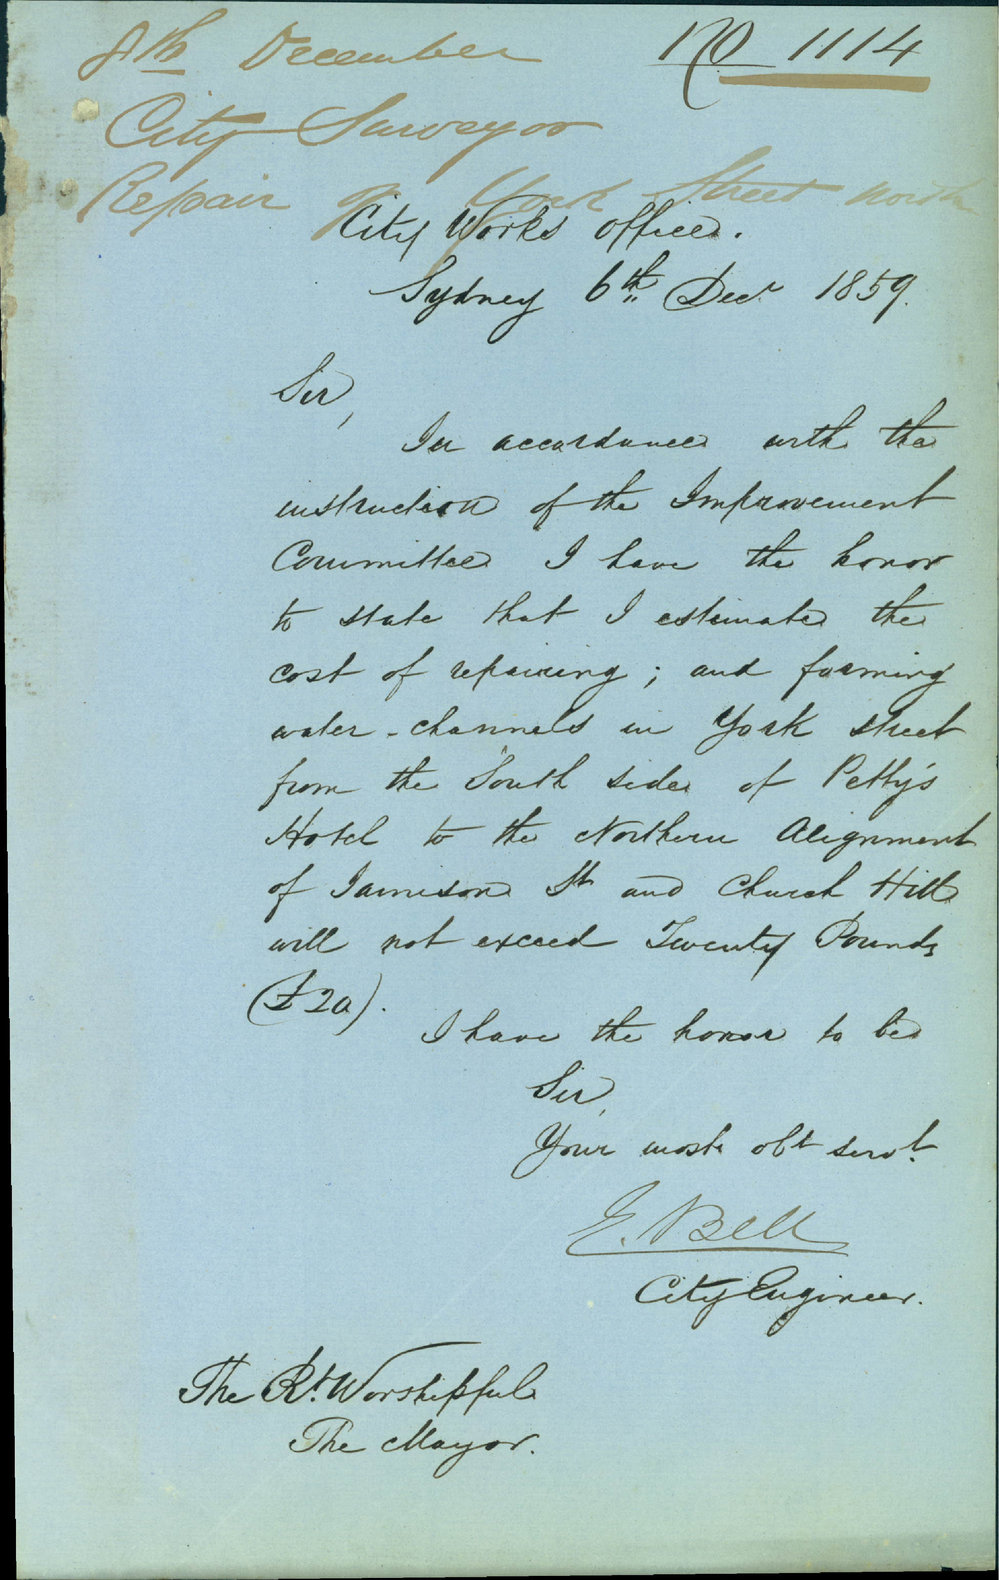 8th December No 1114
City Surveyor
Repair of York Street North
City Works Office.
Sydney 6th Decr 1859.
Sir,
In accordance with the
instruction of the Improvement
Committee I have the honor
to state that I estimate the
cost of repairing; and forming
water-channels in York Street
from the South side of Petty's
Hotel to the Northern Alignment
of Jamison St and Church Hill
will not exceed Twenty Pounds
(£20).
I have the honor to be
Sir,
Your most obt servt.
E. Bell
City Engineer.
The Rt. Worshipful
The Mayor.